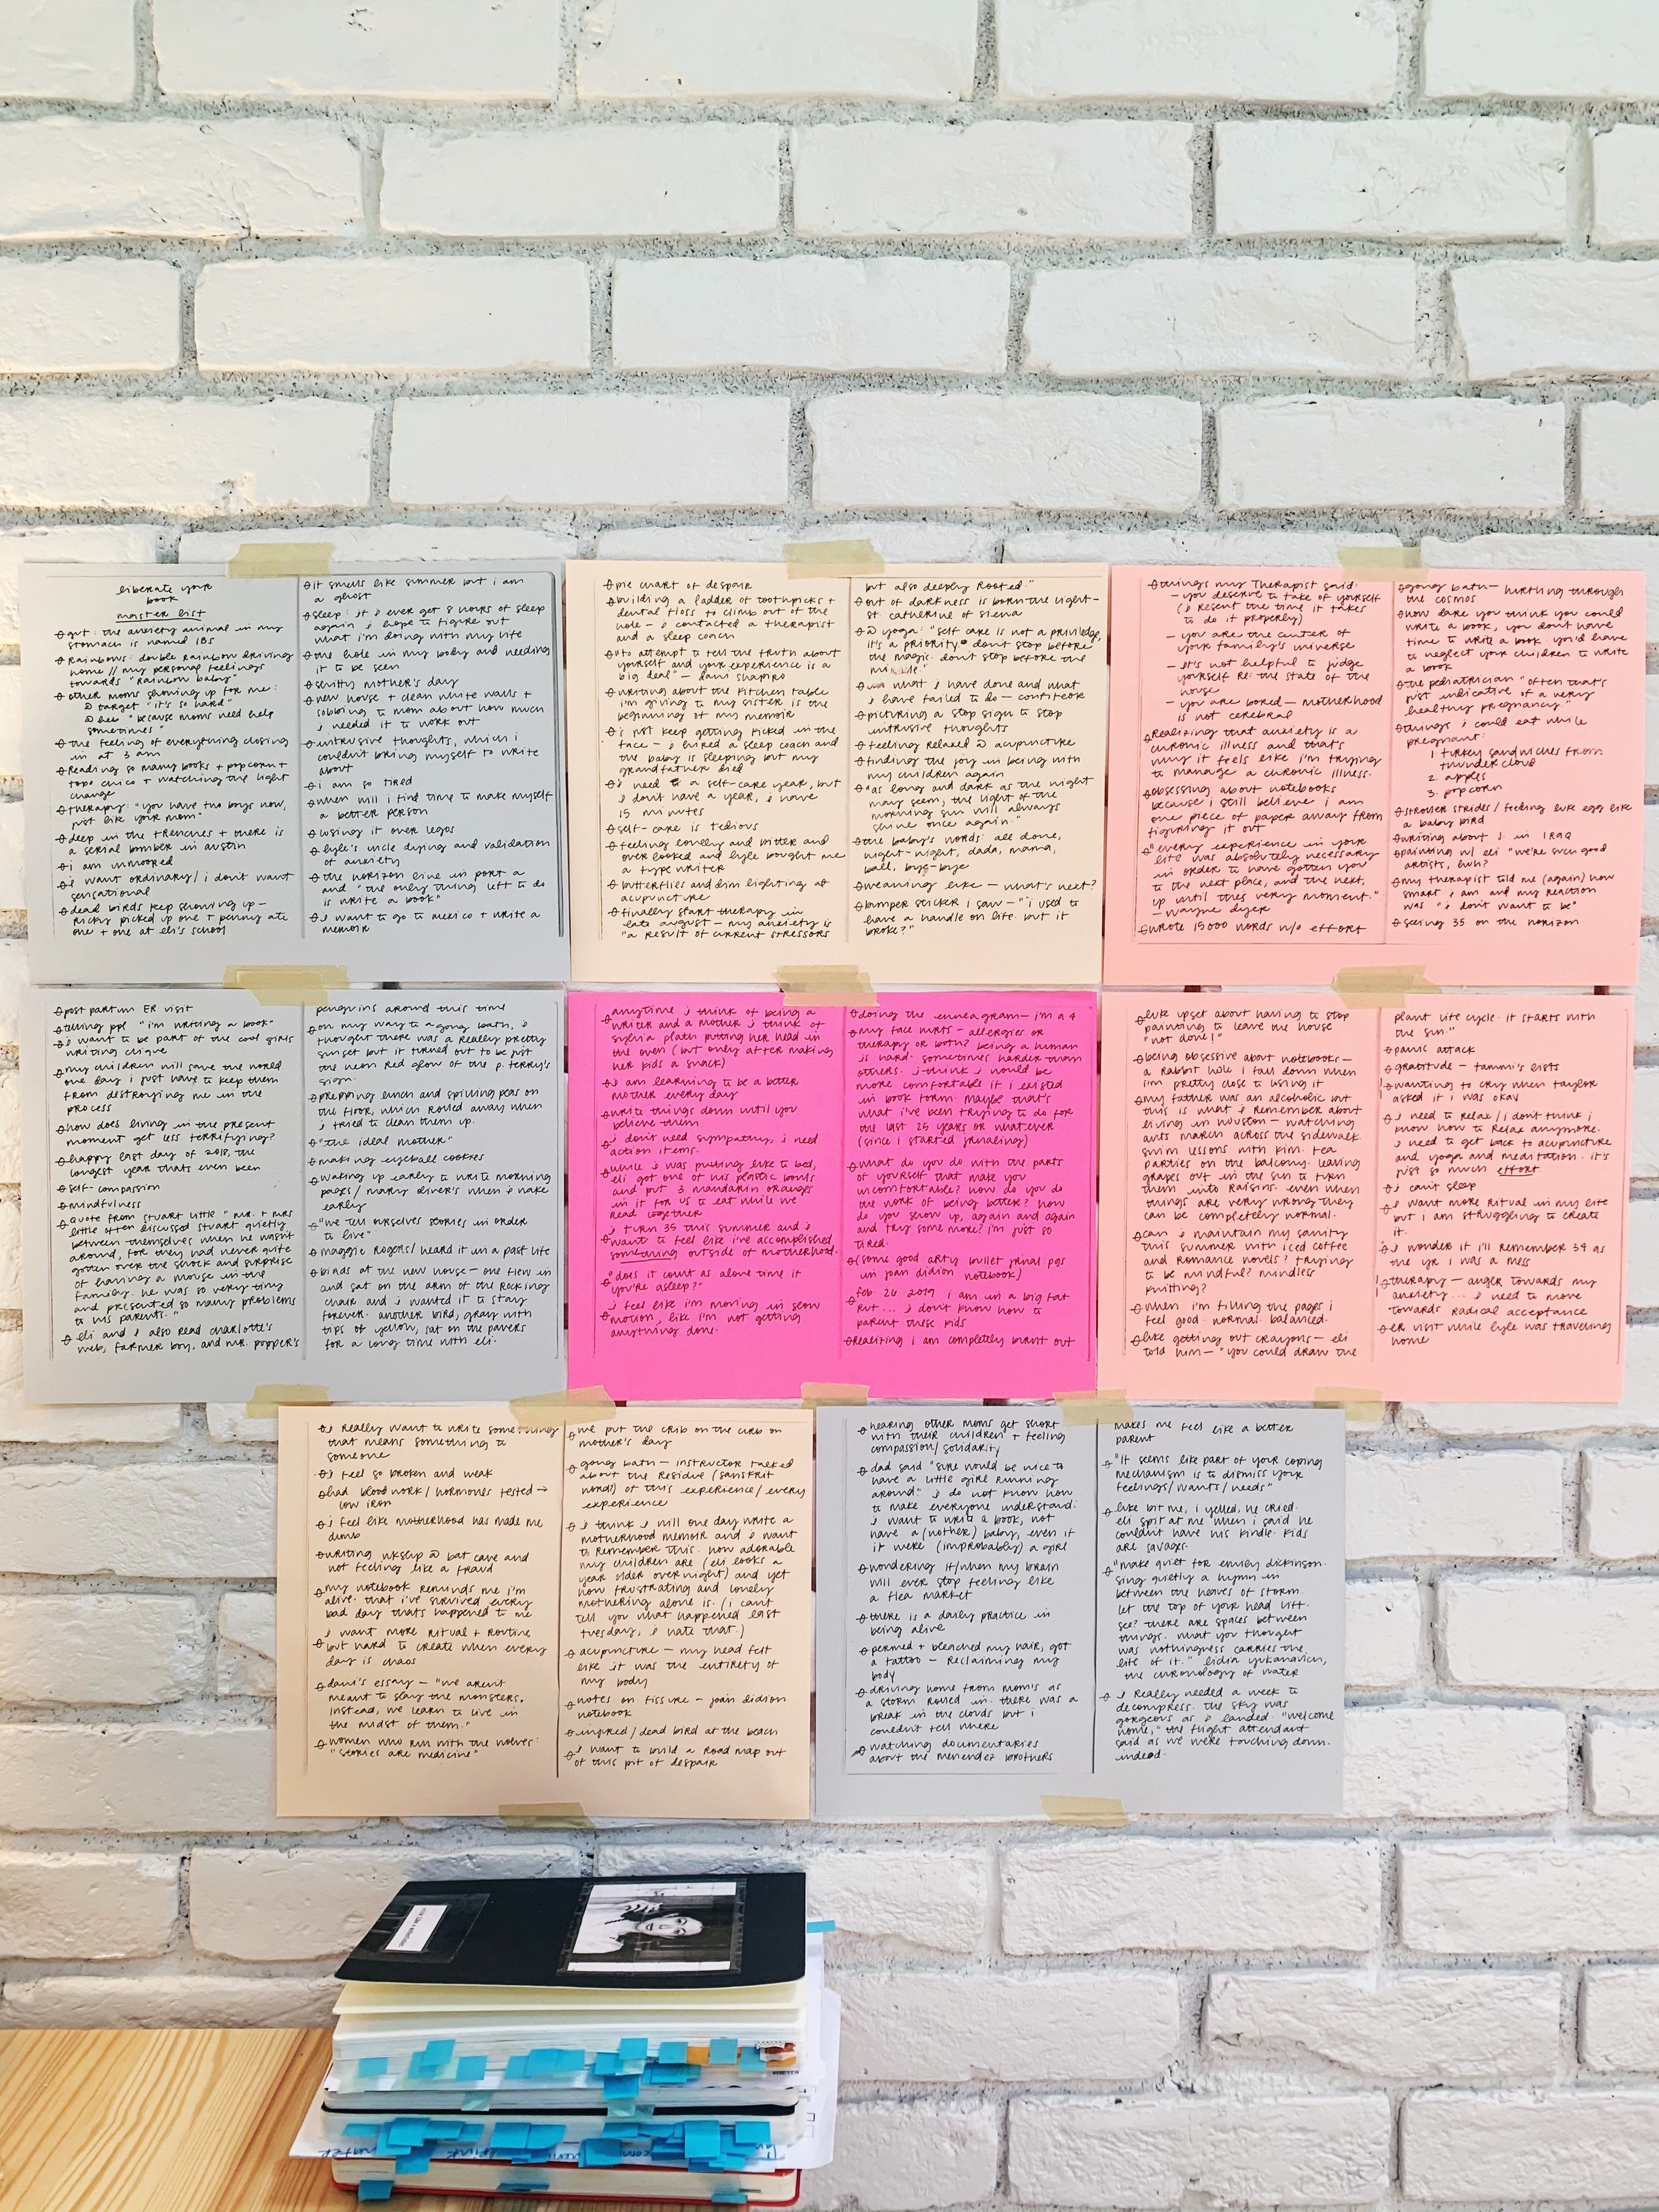 liberate your
book
master list
gut: the anxiety animal in my
stomach is named IBS
rainbows: double rainbow driving
home // my personal feelings
towards "rainbow baby"
other moms showing up for me:
@ target "it's so hard"
@ heb "because moms need help
sometimes"
the feeling of everything closing
in at 3 am
reading so many books + popcorn +
topo chico + watching the light
change
therapy: "you have two boys now,
just like your mom"
deep in the trenches + there is
a serial bomber in austin
i am unmoored
i want ordinary / i don't want
sensational
dead birds keep showing up —
ricky picked up one + penny ate
one + one at eli's school
it smells like summer but i am
a ghost
sleep: if i ever get 8 hours of sleep
again i hope to figure out
what i'm doing with my life
the hole in my body and needing
it to be seen
shitty mother's day
new house + clean white walls +
sobbing to mom about how much
i needed it to work out
intrusive thoughts, which i
couldn't bring myself to write
about
i am so tired
when will i find time to make myself
a better person
losing it over legos
lyle's uncle dying and validation
of anxiety
the horizon line in port a
and "the only thing left to do
is write a book"
i want to go to mexico + write a
memoir
pie chart of despair
building a ladder of toothpicks +
dental floss to climb out of the
hole — i contacted a therapist
and a sleep coach
"to attempt to tell the truth about
yourself and your experience is a
big deal" — dani shapiro
writing about the kitchen table
i'm giving to my sister is the
beginning of my memoir
i just keep getting kicked in the
face — i hired a sleep coach and
the baby is sleeping but my
grandfather died
i need to a self-care year, but
i don't have a year, i have
15 minutes
self-care is tedious
feeling lonely and bitter and
overlooked and lyle bought me
a typewriter
butterflies and dim lighting at
acupuncture
finally start therapy in
late august — my anxiety is
"a result of current stressors
but also deeply rooted."
out of darkness is born the light —
st catherine of siena
@ yoga: "self care is not a priviledge,
it's a priority. don't stop before
the magic. don't stop before the
miracle."
what i have done and what
i have failed to do — confiteor
picturing a stop sign to stop
intrusive thoughts
feeling relaxed @ acupuncture
finding the joy in being with
my children again
"as long and dark as the night
may seem, the light of the
morning sun will always
shine once again."
the baby's words: all done,
night-night, dada, mama,
ball, bye-bye
weaning luke — what's next?
bumper sticker i saw — "i used to
have a handle on life. but it
broke?"
things my therapist said:
— you deserve to take of yourself
(i resent the time it takes
to do it properly)
— you are the center of
your family's universe
— it's not helpful to judge
yourself re: the state of the
house
— you are bored — motherhood
is not cerebral
realizing that anxiety is a
chronic illness and that's
why it feels like i'm trying
to manage a chronic illness.
obsessing about notebooks
because i still believe i am
one piece of paper away from
figuring it out
"every experience in your
life was absolutely necessary
in order to have gotten you
to the next place, and the next,
up until this very moment."
— wayne dyer
wrote 15000 words w/o effort
gong bath — hurtling through
the cosmos
how dare you think you could
write a book, you don't have
time to write a book. you'd have
to neglect your children to write
a book
the pediatrician "often that's
just indicative of a very
healthy pregnancy."
things i could eat while
pregnant:
1. turkey sandwiches from
thundercloud
2. apples
3. popcorn
stroller strides / feeling luke egg like
a baby bird
writing about j. in 1999
painting w/ eli "we're such good
artists, huh?
my therapist told me (again) how
smart i am and my reaction
was "i don't want to be"
seeing 35 on the horizon
post partum ER visit
telling ppl "i'm writing a book"
i want to be part of the cool girls
writing clique
my children will save the world
one day i just have to keep them
from destroying me in the
process
how does living in the present
moment get less terrifying?
happy last day of 2018, the
longest year that's even been
self-compassion
mindfulness
quote from stuart little "mr. + mrs
little often discussed stuart quietly
between themselves when he wasn't
around, for they had never quite
gotten over the shock and surprise
of having a mouse in the
family. he was so very tiny
and presented so many problems
to his parents."
eli and i also read charlotte's
web, farmer boy, and mr. popper's
penguins around this time
on my way to a gong bath, i
thought there was a really pretty
sunset but it turned out to be just
the neon red glow of the p. terry's
sign.
prepping lunch and spilling peas on
the floor, which rolled away when
i tried to clean them up.
"the ideal mother"
making eyeball cookies
waking up early to write morning
pages / mary oliver's when i wake
early
"we tell ourselves stories in order
to live"
maggie rogers / heard it in a past life
birds at the new house — one flew in
and sat on the arm of the rocking
chair and i wanted it to stay
forever. another bird, gray with
tips of yellow, sat on the pavers
for a long time with eli.
anytime i think of being a
writer and a mother i think of
sylvia plath putting her head in
the oven (but only after making
her kids a snack)
i am learning to be a better
mother every day
write things down until you
believe them
i don't need sympathy, i need
action items.
while i was putting luke to bed,
eli got one of his plastic bowls
and put 3 mandarin oranges
in it for us to eat while we
read together
i turn 35 this summer and i
want to feel like i've accomplished
something outside of motherhood.
"does it count as alone time if
you're asleep?"
i feel like i'm moving in slow
motion, like i'm not getting
anything done.
doing the enneagram — i'm a 4
my face hurts — allergies or
therapy or both? being a human
is hard. sometimes harder than
others. i think i would be
more comfortable if i existed
in book form. maybe that's
what i've been trying to do for
the last 25 years or whatever
(since i started jrnaling)
what do you do with the parts
of yourself that make you
uncomfortable? how do you do
the work of being better? how
do you show up, again and again
and try some more? i'm just so
tired.
(some good arty bullet jrnal pgs
in joan didion notebook)
feb. 26 2019 i am in a big fat
rut... i don't know how to
parent these kids
realizing i am completely burnt out
luke upset about having to stop
painting to leave the house
"not done!"
being obsessive about notebooks —
a rabbit hole i fall down when
i'm pretty close to losing it
my father was an alcoholic but
this is what i remember about
living in houston — watching
ants march across the sidewalk.
swim lessons with kim. tea
parties on the balcony. leaving
grapes out in the sun to turn
them into raisins. even when
things are very wrong they
can be completely normal.
can i maintain my sanity
this summer with iced coffee
and romance novels? trying
to be mindful? mindless
knitting?
when i'm filling the pages i
feel good. normal. balanced.
luke getting out crayons — eli
told him — "you could draw the
plant life cycle. it starts with
the sun"
panic attack
gratitude — tammi's lists
wanting to cry when taylor
asked if i was okay
i need to relax / i don't think i
know how to relax anymore.
i need to get back to acupuncture
and yoga and meditation. it's
just so much effort.
i can't sleep
i want more ritual in my life
but i am struggling to create
it.
i wonder if i'll remember 34 as
the yr i was a mess
therapy — anger towards my
anxiety... i need to move
towards radical acceptance
ER visit while lyle was traveling
home
i really want to write something
that means something to
someone
i feel so broken and weak
had bloodwork / hormones tested →
low iron
i feel like motherhood has made me
dumb
writing wkshp @ bat cave and
not feeling like a fraud
my notebook reminds me i'm
alive. that i've survived every
bad day that's happened to me
i want more ritual + routine
but hard to create when every
day is chaos
dani's essay — "we aren't
meant to slay the monsters.
instead, we learn to live in
the midst of them."
women who run with the wolves:
"stories are medicine"
we put the crib on the curb on
mother's day
gong bath — instructor talked
about the residue (sanskrit
word) of this experience / every
experience
i think i will one day write a
motherhood memoir and i want
to remember this. how adorable
my children are (eli looks a
year older overnight) and yet
how frustrating and lonely
mothering alone is. (i can't
tell you what happened last
tuesday, i hate that.)
acupuncture — my head felt
like it was the entirety of
my body
notes on fissure — joan didion
notebook
injured / dead bird at the beach
i want to build a road map out
of this pit of despair
hearing other moms get short
with their children + feeling
compassion / solidarity
dad said "sure would be nice to
have a little girl running
around." i do not know how
to make everyone understand:
i want to write a book, not
have a (nother) baby, even if
it were (improbably) a girl
wondering if/when my brain
will ever stop feeling like
a flea market
there is a daily practice in
being alive
permed + bleached my hair, got
a tattoo — reclaiming my
body
driving home from mom's as
a storm rolled in. there was a
break in the clouds but i
couldn't tell where
watching documentaries
about the menendez brothers
makes me feel like a better
parent
"it seems like part of your coping
mechanism is to dismiss your
feelings / wants / needs"
luke bit me, i yelled, he cried.
eli spit at me when i said he
couldn't have his kindle. kids
are savages.
"make quiet for emily dickinson.
sing quietly a hymn in
between the heaves of storm.
let the top of your head lift.
see? there are spaces between
things. what you thought
was nothingness carries the
life of it." lidia yuknavich,
the chronology of water
i really needed a week to
decompress. the sky was
gorgeous as i landed. "welcome
home," the flight attendant
said as we were touching down.
indeed.